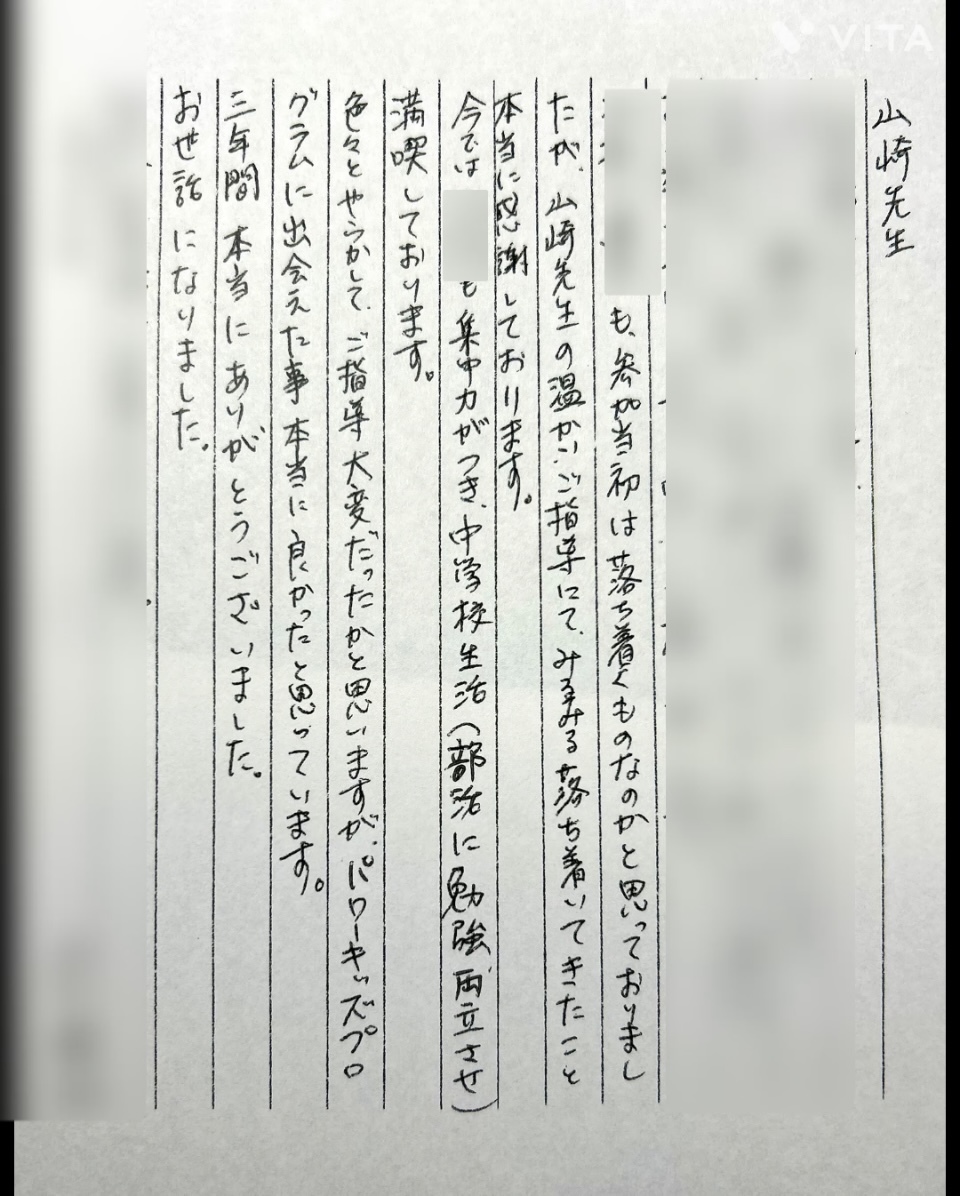 山崎先生
も、参加当初は落ち着くものなのかと思っておりまし
たが、山崎先生の温かいご指導にて、みるみる落ち着いてきたこと
本当に感謝しております。
今では
も集中力がつき、中学校生活(部活に勉強、両立させ)
満喫しております。
色々とやらかして、ご指導大変だったかと思いますが、パワーキッズプロ
グラムに出会えた事本当に良かったと思っています。
三年間本当にありがとうございました。
お世話になりました。
VITA